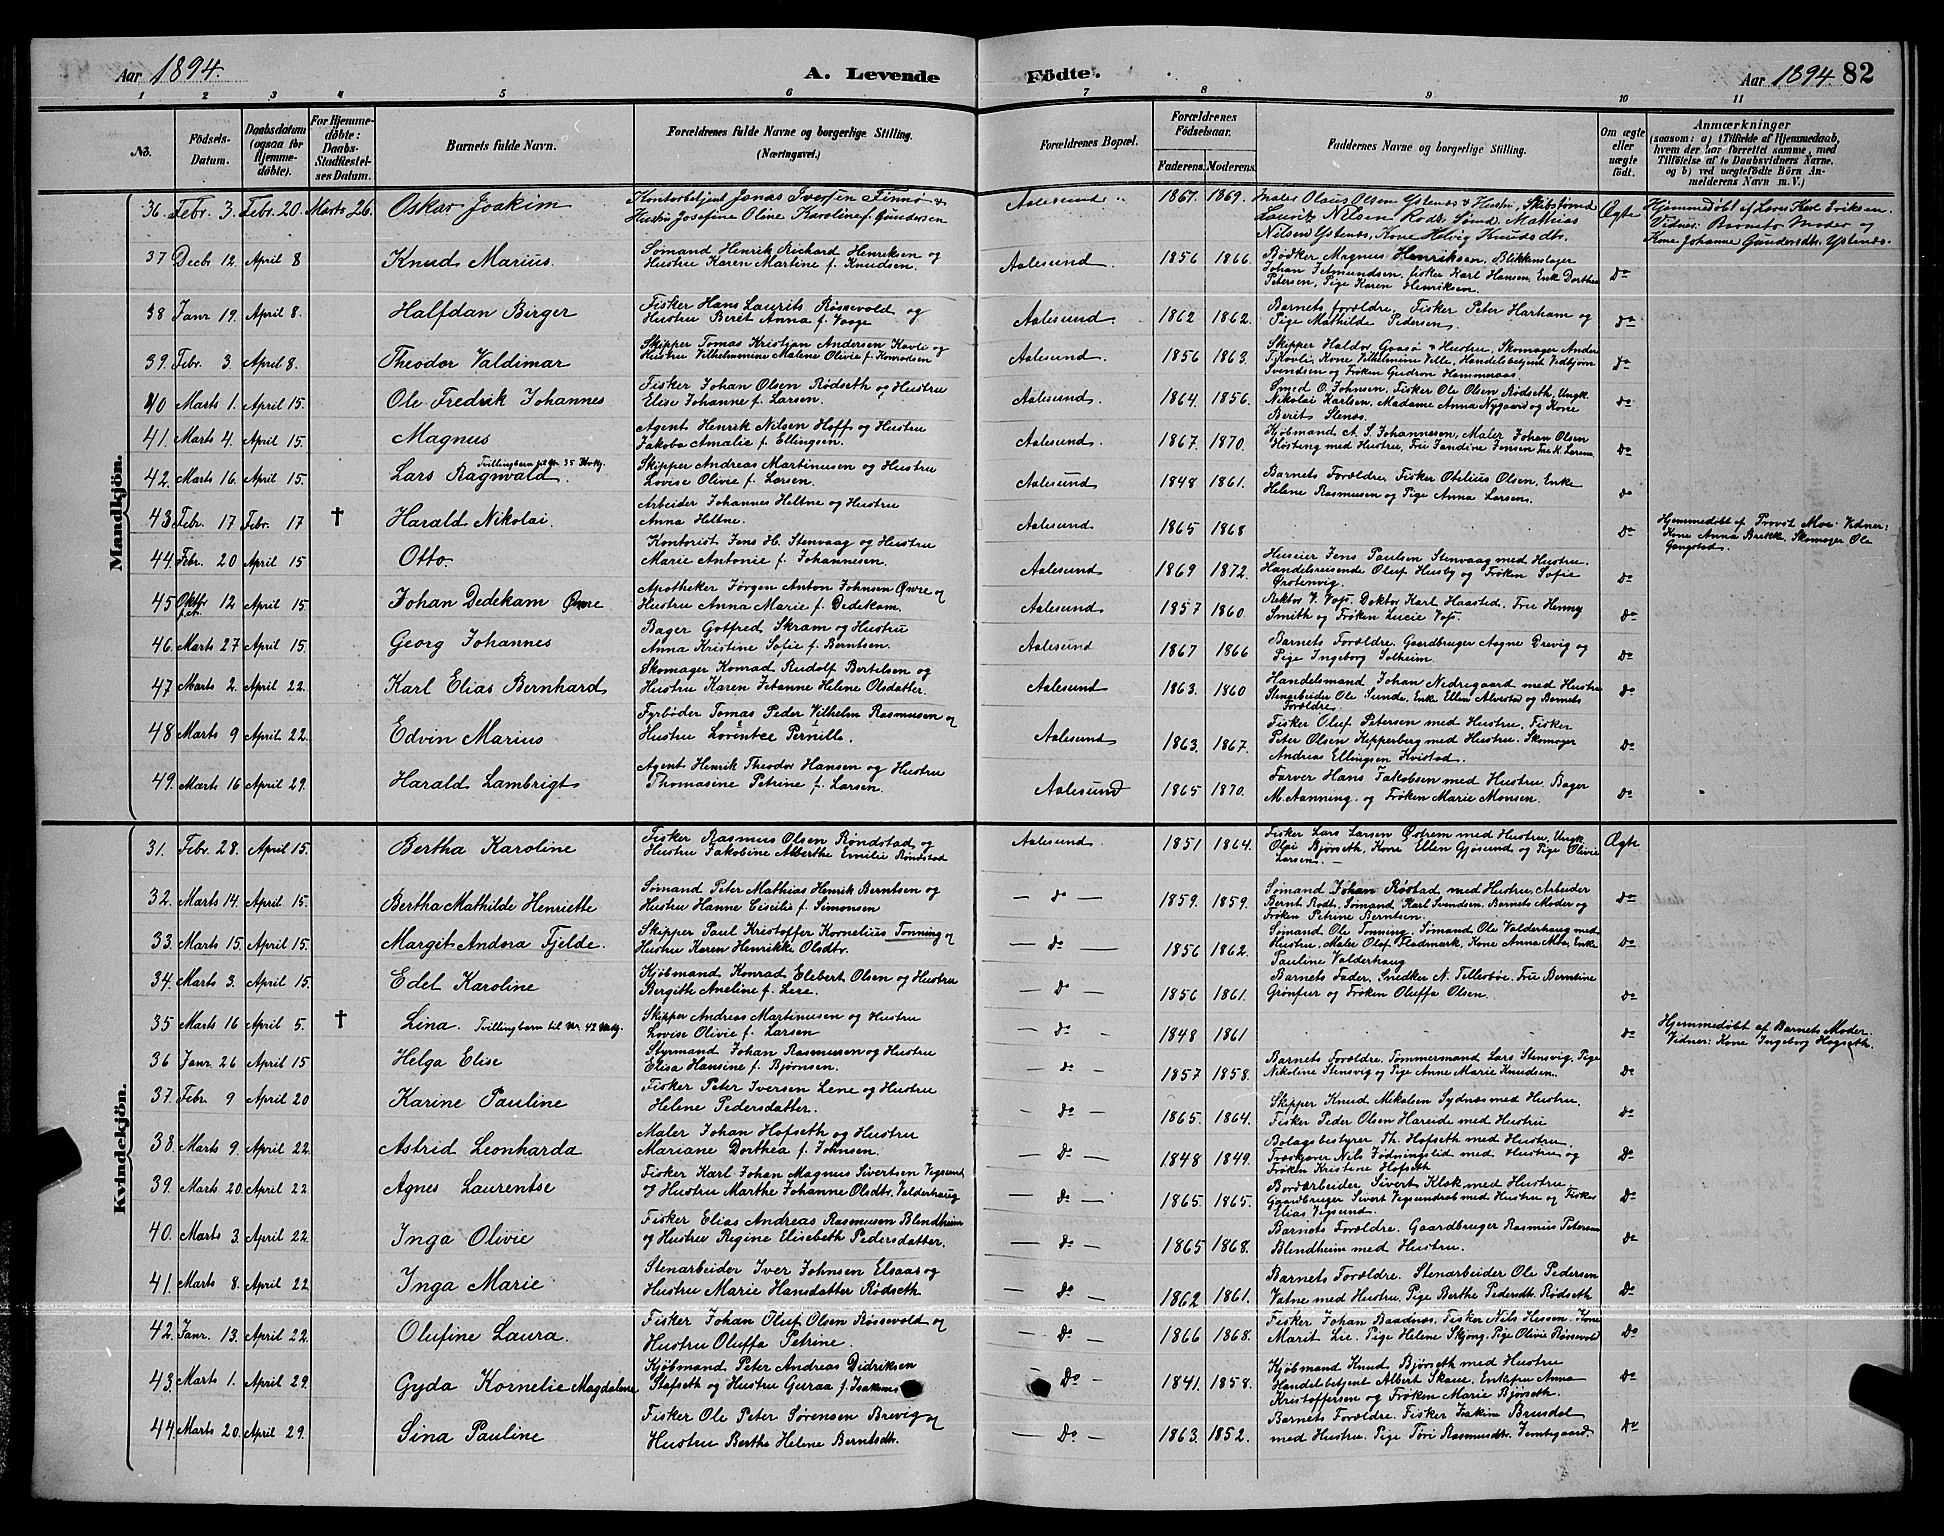 Aar 1894. A. Levende Födte. Aar 1894. 82
1 2 3 4 5 6 7 8 9 10 11
No. Födsels-Datum. Daabsdatum (ogsaa for Hjemme-döbte). For Hjemme-döbte: Daabs-Stadfæstel-ses Datum. Barnets fulde Navn. Forældrenes fulde Navne og borgerlige Stilling. (Næringsvei.) Forældrenes Bopæl. Forældrenes Födselsaar. Faderens. Moderens. Faddernes Navne og borgerlige Stilling. Om ægte eller uægte födt. Anmærkninger (saasom: a) i Tilfælde af Hjemmedaab, hvem der har forrettet samme, med Tilföielse af to Daabsvidners Navne, og b) ved uægtefödte Börn Anmelderens Navn m. V.)
Mandkjön.
36. Febr. 3. Febr. 20. Marts 26. Oskar Joakim Kontorbetjent Jonas Iversen Finnø & Hustru Josefine Oline Karoline f. Gundersen Aalesund 1867. 1869. Maler Olaus Olsen Ystenes & Hustru, Skibstømd Lauritz Nilsen Rodt, Sømd. Mathias Nilsen Ystenes, Kone Helvig Knudsdtr. Ægte Hjemmedøbt af Lars Karl Eriksen. Vidner: Barnets Moder og Kone Johanne Gundersdtr. Ystenes.
37 Decbr 12. April 8 Knud Marius. Sømand Henrik Richard Henriksen og Hustru Karen Martine f. Knudsen. Aalesund. 1856 1866. Bødker Magnus Henriksen, Blikkenslager Johan Jetmundsen, fisker Karl Hansen, Enk Dorthea Petersen, Pige Karen Henriksen. Do
38 Janr 19. April 8. Halfdan Birger Fisker Hans Laurits Røssevold og Hustru Beret Anna f. Vaage Aalesund. 1862 1862. Barnets forældre, Fisker Peter Harham og Pige Mathilde Pedersen. Do
39. Febr. 3 April 8. Theodor Valdimar Skipper Tomas Kristian Andersen Kavli & Hustru Vilhelmmine Malene Olivie f. Komodsen Aalesund. 1856 1863. Skipper Haldor Gaasø & Hustru, Skomager Ander T. Kovli, Kone Vilhelmine Ville, Handelsbetjent Vedbjørn Svendsen og Frøken Gudron Hammeraas. Do
40 Marts 1. April 15. Ole Fredrik Johannes Fisker Johan Olsen Rødseth og Hustru Elise Johanne f. Larsen. Aalesund. 1864. 1856. Smed O. Johnsen, Fisker Ole Olsen Rødseth, Ungk. Nikolai Karlsen, Madame Anna Nygaard og Kone Berit Stenes. Do
41. Marts 4. April 15. Magnus Agent Henrik Nilsen Hoff og Hustru Jakoba Amalie f. Ellingsen. Aalesund. 1867. 1870. Kjøbmand A. S. Johannesen, Maler Johan Olsen Hosteng med Hustru, Fru Jandine Jensen Fru K. Larsen. Do
42. Marts 16. April 15. Lars Ragnvald Tvillingbarn til Nr 35 Kvkj. Skipper Andreas Martinusen og Hustru Lovise Olivie f. Larsen. Aalesund 1848 1861. Barnets Forældre, Fisker Otelius Olsen, Enke Helene Rasmusen og Pige Anna Larsen. Do
43 Febr. 17 Febr. 17 † Harald Nikolai. Arbeider Johannes Heltne og Hustru Anna Heltne. Aalesund 1865 1868 Do Hjemmedøbt af Provst Moe. Vidner: Kone Anna Brekk, Skomager Ole Gangstad.
44. Febr. 20 April 15 Otto. Kontorist Jens H. Stenvaag og Hustru Marie Antonie f. Johannesen. Aalesund 1869 1872. Huseier Jens Paulsen Stenvaag med Hustru. Handelsreisende Oluf Husby og Frøken Sofie Grotenvig. Do
45 Oktbr f. A. 12 April 15. Johan Dedekam Øwre Apotheker Jörgen Anton Johnsen Øwre og Hustru Anna Marie f. Dedekam. Aalesund. 1857 1860. Rektor V. Voss. Doktor Karl Haasted. Fru Henny Smith og Frøken Lucie Voss. Do
46. Marts 27 April 15. Georg Johannes Bager Gotfred Skram og Hustru Anna Kristine Sofie f. Berntsen. Aalesund 1867 1866 Barnets Forældre. Gaardbruger Aagne Drevig og Pige Ingeborg Solheim. Do
47 Marts 2. April 22. Karl Elias Bernhard Skomager Konrad Rudolf Bertelsen og Hustru Karen Jetanne Helene Olsdatter. Aalesund 1863. 1860 Handelsmand Johan Nedregaard med Hustru Stenarbeider Ole Sunde, Enk Ellen Alvestad og Barnets Forældre. Do
48 Marts 9 April 22. Edvin Marius Fyrbøder Tomas Peder Vilhelm Rasmusen og Hustru Lorentce Pernille. Aalesund 1863. 1867. Fisker Oluf Petersen med Hustru. Fisker Peter Olsen Kipperberg med Hustru. Skomager Andreas Ellingsen Kvistad. Do
49. Marts 16 April 29. Harald Lambrigt Agent Henrik Theodor Hansen og Hustru Thomasine Petrine f. Larsen. Aalesund 1865 1870. Farver Hans Jakobsen med Hustru. Bager M. Aanning. og Frøken Marie Monsen. Do
Kvindekjön.
31. Febr. 28. April 15. Bertha Karoline Fisker Rasmus Olsen Røndstad og Hustru Jakobine Alberthe Emilie Røndstad Aalesund. 1851 1864. Fisker Lars Larsen Østrem med Hustru. Ungk. Olai Bjørseth, Kone Ellen Gjøsund og Pige Olivie Larsen. Ægte
32. Marts 14. April 15. Bertha Mathilde Henriette Sømand Peter Mathias Henrik Berntsen og Hustru Hanne Cicilie f. Simonsen — do — 1859. 1859. Sømand Johan Røstad med Hustru, Arbeider Bernt Rodt. Sømand Karl Svendsen. Barnets Moder og Frøken Petrine Berntsen. Do
33. Marts 15. April 15. Margit Andora Fjelde. Skipper Paul Kristoffer Kornelius Tonning og Hustru Karen Henrikke Olsdtr. — do — 1856 1862. Sømand Ole Tonning. Sømand Ole Valderhaug med Hustru, Maler Olaf Fladmark, Kone Anna Moe, Enke Pauline Valderhaug Do
34. Marts 3. April 15. Edel Karoline Kjøbmand Konrad Elebert Olsen og Hustru Bergitte Aneline f. Lere. — do — 1856 1861. Barnets Fader, Snedker N. Tellesbøe. Fru Berntine Grønfur og Frøken Oluffa Olsen. Do
35 Marts 16 April 5. † Lina. Tvillingbarn til Nr 42 Mkj. Skipper Andreas Martinusen og Hustru Lovise Olivie f. Larsen — do — 1848 1861 Do Hjemmedøbt af Barnets Moder. Vidner: Kone Ingeborg Hogseth.
36 Janr. 26 April 15 Helga Elise Styrmand Johan Rasmusen og Hustru Elisa Hansine f. Bjørnsen. — do — 1857 1858. Barnets Forældre. Tømmermand Lars Stensvig, Pige Nikoline Stensvig og Pige Anne Marie Knudsen. Do
37. Febr. 9 April 20 Karine Pauline Fisker Peter Iversen Lene og Hustru Helene Pedersdatter. — do — 1865. 1864. Skipper Knud Mikalsen Sydnes med Hustru. Fisker Peder Olsen Hareide med Hustru Do
38. Marts 9. April 22. Astrid Leonharda Maler Johan Hofseth og Hustru Mariane Dorthea f. Johnsen. — Do — 1848 1849. Bolagsbestyrer Th. Hofseth med Hustru. Træskjærer Nils Fødningslid med Hustru og Frøken Kristine Hofseth Do
39. Marts 20. April 22 Agnes Laurentse Fisker Karl Johan Magnus Sivertsen Vegsund og Hustru Marthe Johanne Olsdtr. Valderhaug — Do — 1865. 1865. Bordarbeider Sivert Klok med Hustru Gaardbruger Sivert Vegsundsøt med Hustru og Fisker Elias Vegsund. Do
40. Marts 3 April 22. Inga Olivie Fisker Elias Andreas Rasmusen Blindheim og Hustru Regine Elisebeth Pedersdatter. — do — 1865 1868. Barnets Forældre. Gaardbruger Rasmus Petersen Blindheim med Hustru. Do
41. Marts 8. April 22 Inga Marie Stenarbeider Iver Johnsen Elsaas og Hustru Marie Hansdatter Rødseth — do — 1862 1861. Barnets Forældre. Stenarbeider Ole Pedersen Vatne med Hustru. Pige Berthe Pedersdt. Rødseth Do
42. Janr. 13. April 22. Olufine Laura. Fisker Johan Oluf Olsen Røssevold og Hustru Oluffa Petrine. — Do — 1866 1868. Fisker Johan Baadnæs. Fisker Nils Hessen. Kone Marit Lie. Pige Helene Skjong. Pige Olivie Rønsevold Do
43. Marts 1. April 29. Gyda Kornelie Magdalene Kjøbmand Peter Andreas Didriksen Stafseth og Hustru Guraa f. Joakims — Do — 1841. 1858. Kjøbmand Knud Bjørseth med Hustru Handelsbetjent Albert Skaue, Enkefru Anna Kristoffersen og Frøken Marie Bjørseth. Do
44. Marts 20. April 29. Sina Pauline Fisker Ole Peter Sørensen Brevig og Hustru Berthe Helene Berntsdtr. — Do — 1863. 1852. Barnets Forældre. Fisker Joakim Brusdal med Hustru. Pige Tøri Rasmusdtr. Jemtegaard. Do